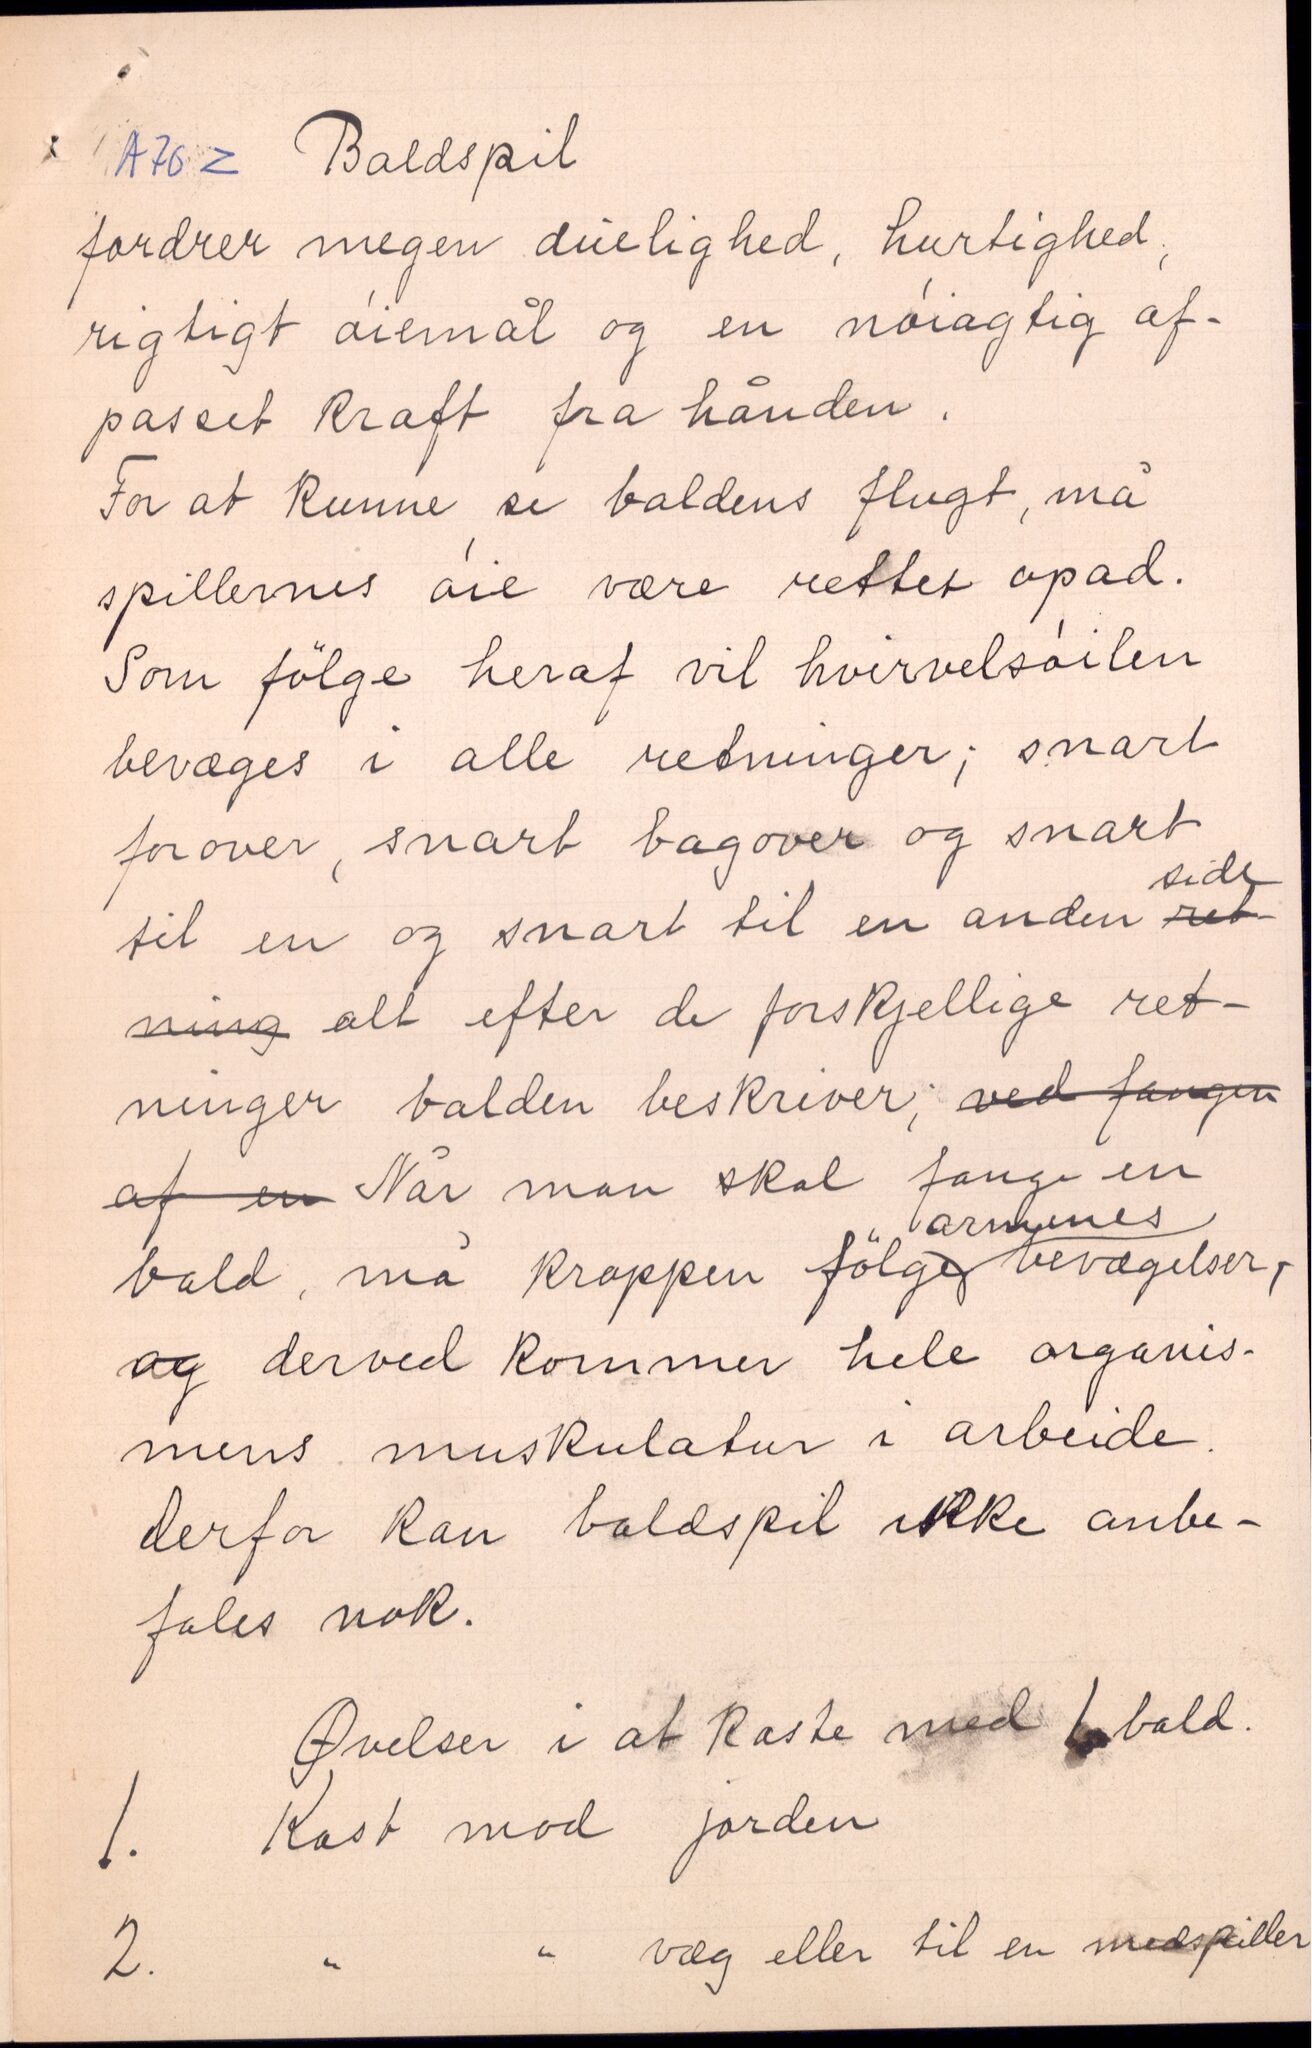 A70z Baldspil
fordrer megen duelighed, hurtighed,
rigtigt óiemål og en nóiagtig af-
passet kraft fra hånden.
For at kunne se baldens flugt, må
spillernes óie være rettet opad.
Som fölge heraf vil hvirvelsóilen
bevæges i alle retninger; snart
forover, snart bagover og snart
side
til en og snart til en anden ret
ning alt efter de forskjellige ret-
ninger balden beskriver; ved fangen
af en Når man skal fange en
armenes
bald, må kroppen fölge bevægelser,
og derved kommer hele organis-
mens muskulatur i arbeide.
derfor kan baldspil ikke anbe-
fales nok.
Øvelser i at kaste med 1 bald.
1. Kast mod jorden
2. " " væg eller til en medspiller